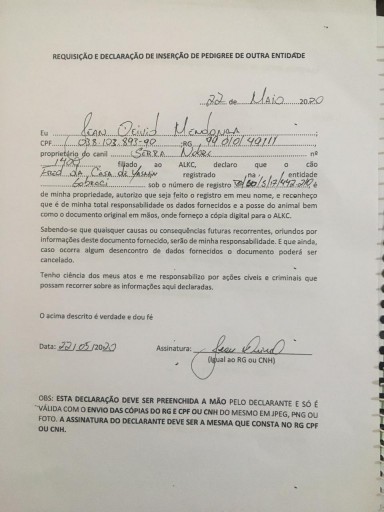 REQUISIÇÃO E DECLARAÇÃO DE INSERÇÃO DE PEDIGREE DE OUTRA ENTIDADE
22 de Maio 2020
Eu Jean Mendonça
CPF 038.103.893-90 RG
proprietário do canil Serra Nobre nº
1400 filiado, ao ALKC, declaro que o cão
Fred da Casa de registrado na entidade
Sobraci sob o número de registro
de minha propriedade, autorizo que seja feito o registro em meu nome, e reconheço
que é de minha total responsabilidade os dados fornecidos e a posse do animal bem
como o documento original em mãos, onde forneço a cópia digital para o ALKC.
Sabendo-se que quaisquer causas ou consequências futuras recorrentes, oriundos por
informações deste documento fornecido, serão de minha responsabilidade. E que ainda,
caso ocorra algum desencontro de dados fornecidos o documento poderá ser
cancelado.
Tenho ciência dos meus atos e me responsabilizo por ações cíveis e criminais que
possam recorrer sobre as informações aqui declaradas.
O acima descrito é verdade e dou fé
Data: 22/05/2020 Assinatura: Jean
(Igual ao RG ou CNH)
OBS: ESTA DECLARAÇÃO DEVE SER PREENCHIDA A MÃO PELO DECLARANTE E SÓ É
VÁLIDA COM O ENVIO DAS CÓPIAS DO RG E CPF OU CNH DO MESMO EM JPEG, PNG OU
FOTO. A ASSINATURA DO DECLARANTE DEVE SER A MESMA QUE CONSTA NO RG CPF
OU CNH.